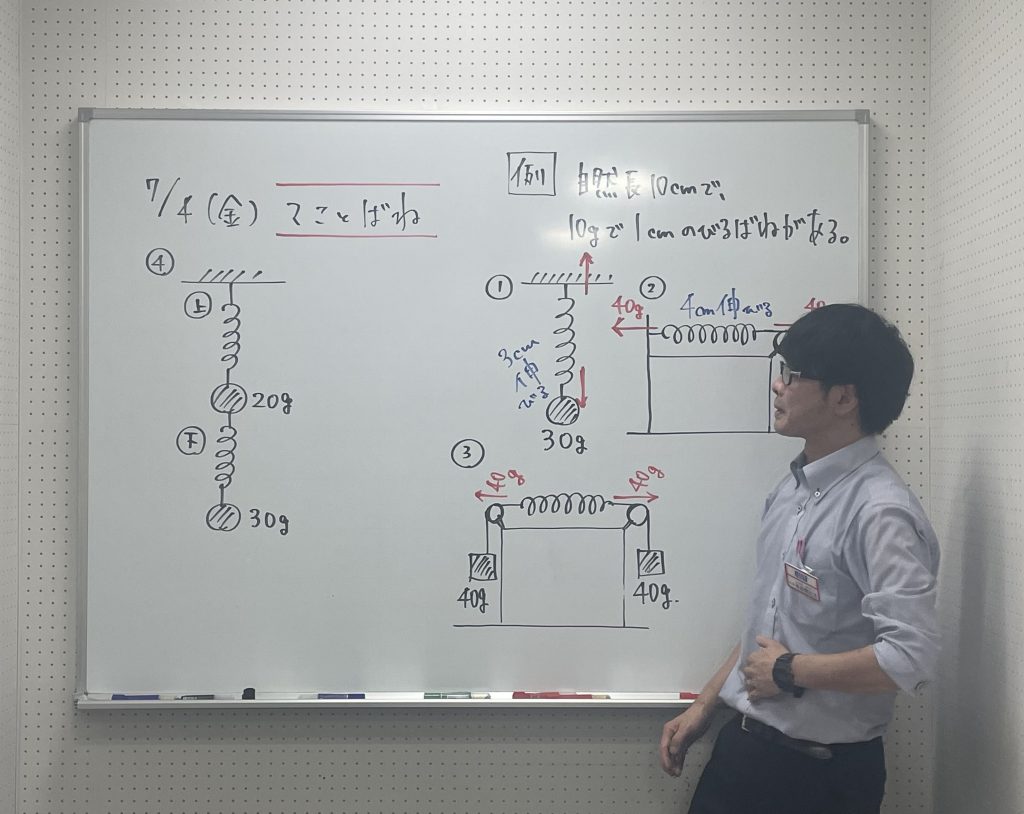 7/4（金） てことばね
例 自然長10cmで、
10gで1cmのびるばねがある。
④
上
20g
下
30g
①
3cm
伸
びる
30g
②
40g
4cm伸びる
③
40g
40g
40g
40g.